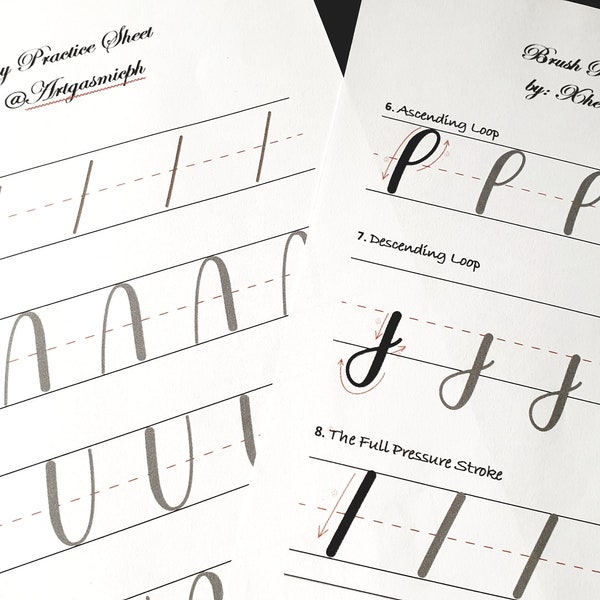 Practice Sheet
@Artgasmicph
Brush
by:
6. Ascending Loop
7. Descending Loop
8. The Full Pressure Stroke